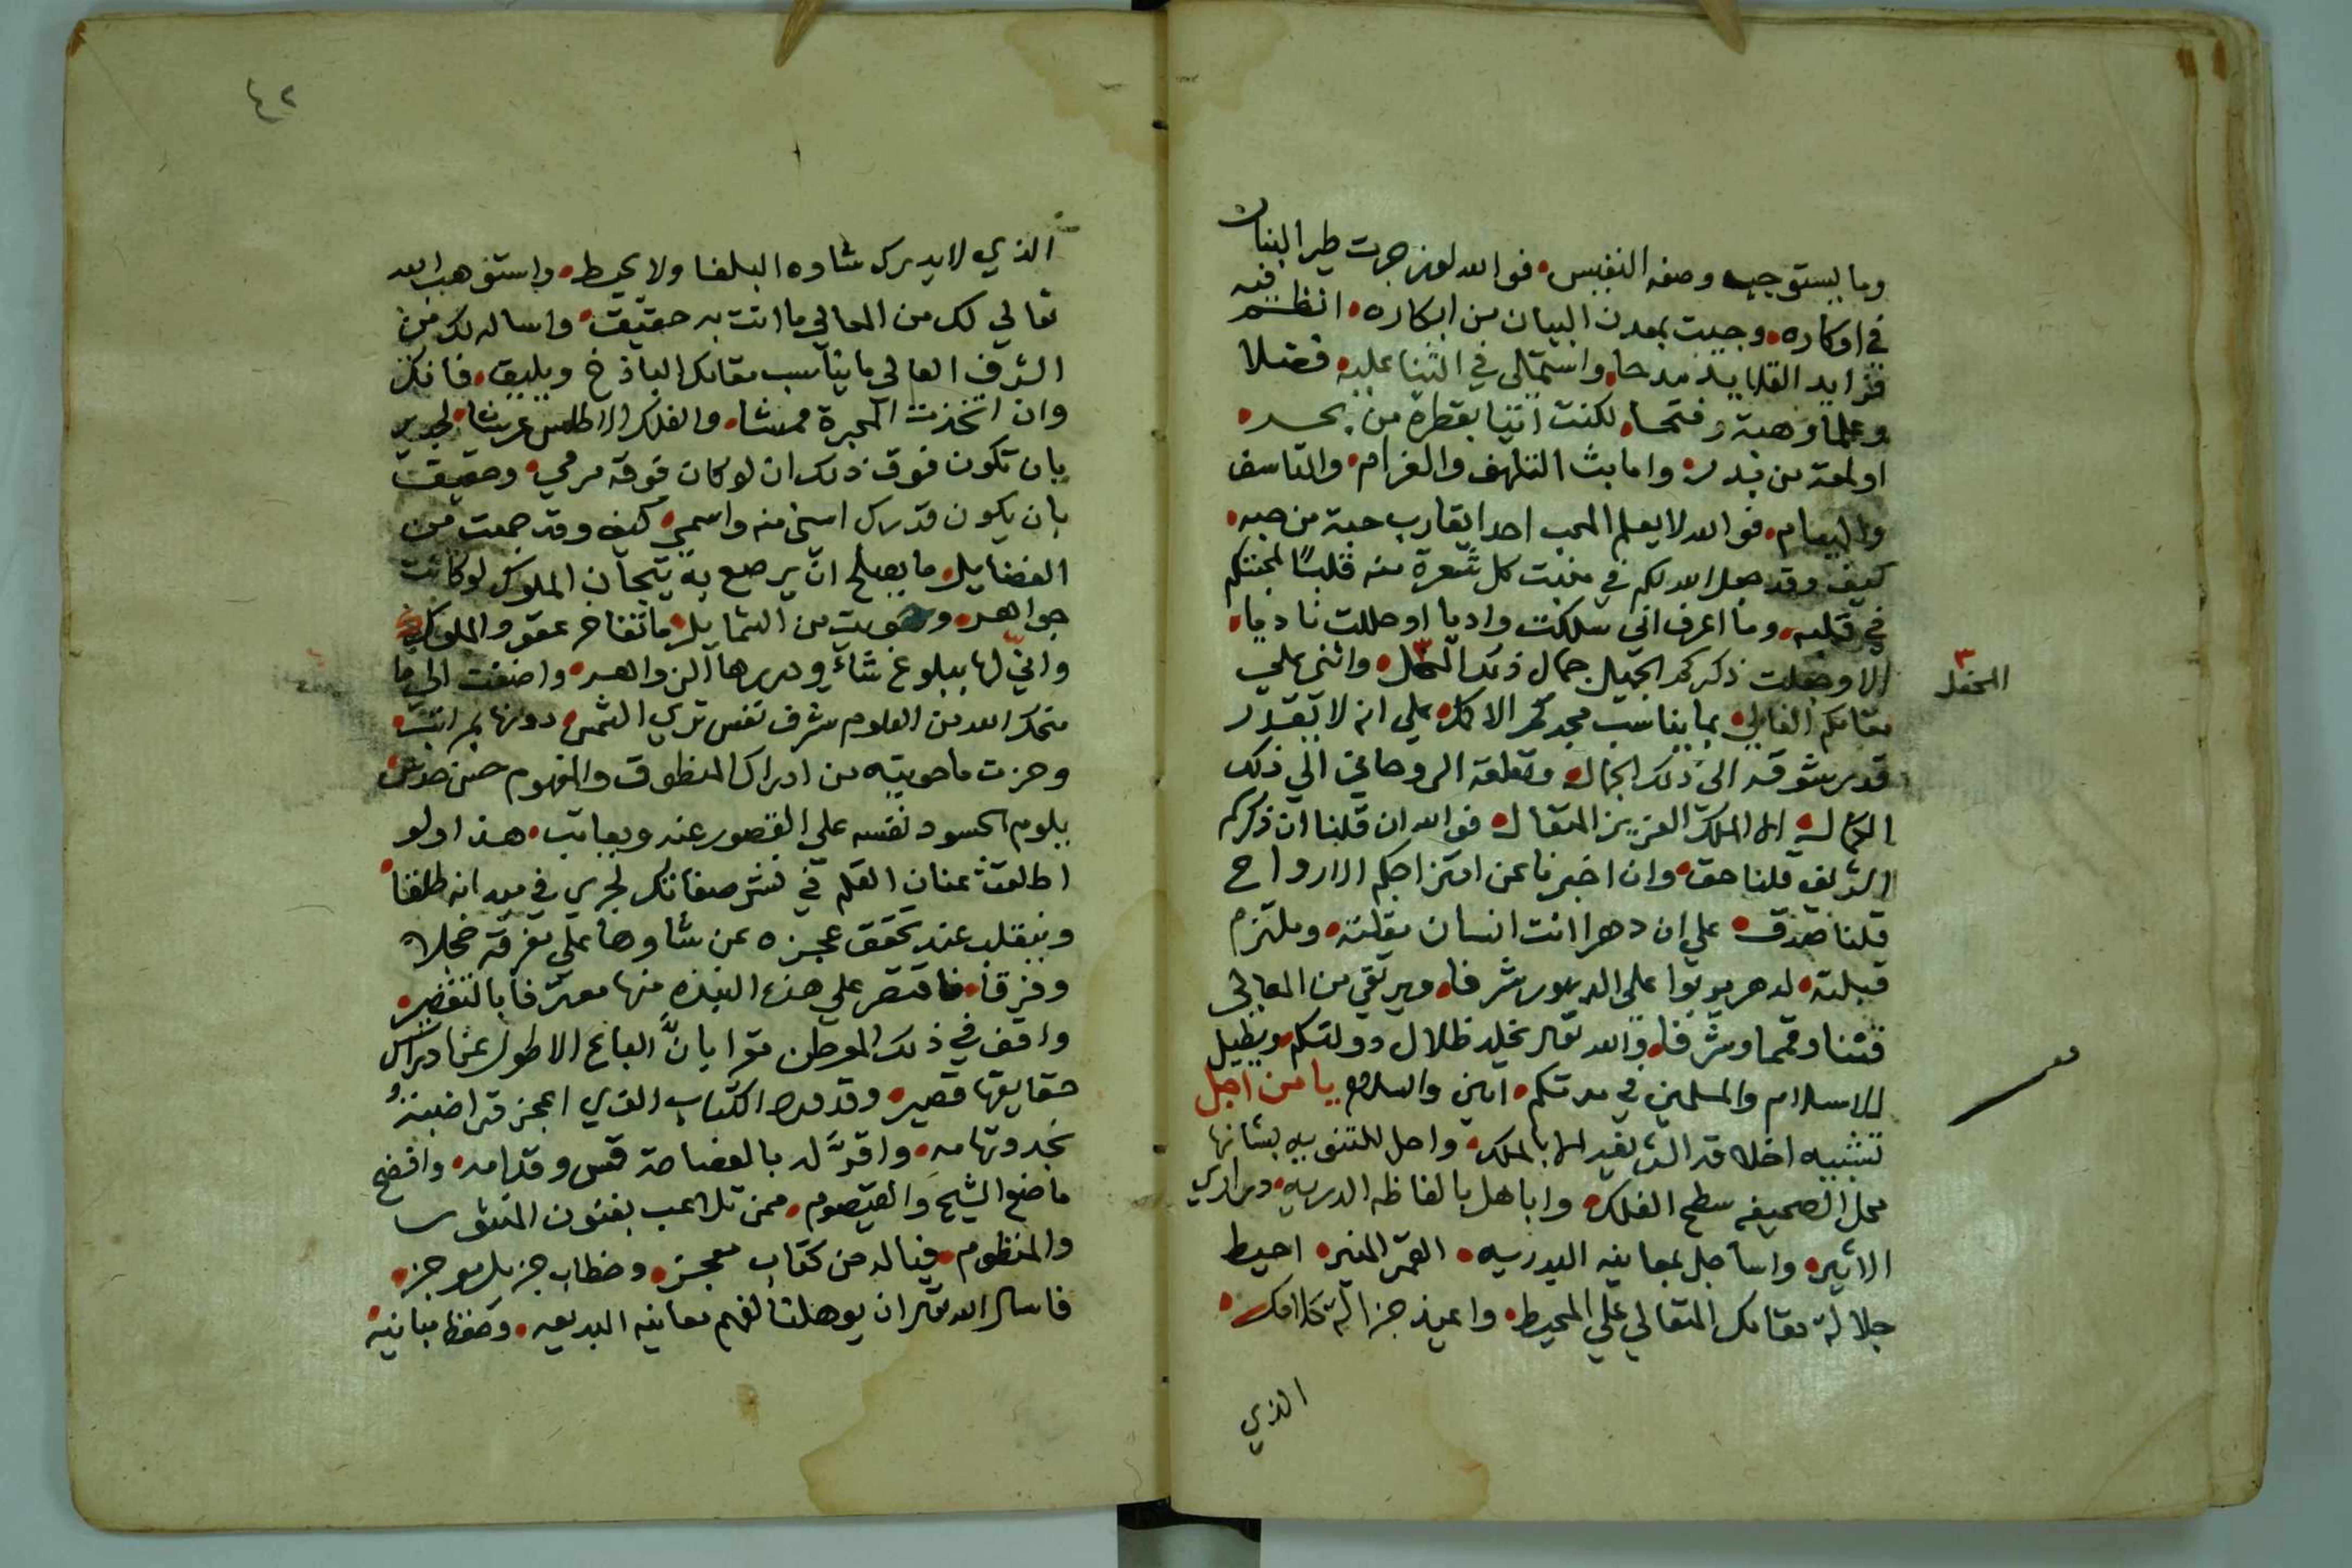 وما يستوجبه وصفه النفيس. فوالله لو زجرت طير البنان
في اوكاره. وجيت بمعدن البيان من ابكاره. انظم فيه
فرايد القلايد مدحا. واستملي في الثنا عليه فضلا
وعلما وهبة وفتحا. لكنت اتيا بقطرة من بحر.
او لمعة من بدر. واما بث التلهف والغرام. والتاسف
والهيام. فوالله لا يعلم المحب احدا يقارب حبة من حبه.
كيف وقد جعل الله لكم في منبت كل شعرة منه قلبًا لمحبتكم
في قلبه. وما اعرف اني سلكت واديا او حللت ناديا.
الا وجعلت ذكركم الجميل جمال ذلك المحل. واثني علي
المحفل
مقامكم العالي. بما يناسب مجدكم الاكمل. علي انه لا يقدر
قدر شوقه الي ذلك الجمال. وتعلقه الروحاني الي ذلك
الكمال. الا الملك العزيز المتعال. فوالله ان قلنا ان ذكركم
الشريف قلنا حق. وان اخبرنا عن امتزاجكم الارواح
قلنا صدق. علي ان دهرا انت انسان مقلته. وملتزم
قبلته. لدهر يربوا علي الدهور شرفا. ويرتقي من المعالي
قننا وقمما وشرفا. والله تعالي يخلد ظلال دولتكم. ويطيل
للاسلام والمسلمين في مدتكم. امين والسلام يا من اجل
تشبيه اخلاقه الشريفه الا بالملك. واحل للتنويه بشانها
محل الصحيفه سطح الفلك. واباهل بالفاظه الدريه. دراري
الاثير. واساجل بمعانيه البدريه. القمر المنير. احيط
جلالة مقامك المتعالي علي المحيط. واعيذ جزالة كلامك.
الذي
٤٢
الذي لا يدرك شاوه البلغا ولا يحيط. واستوهب الله
تعالي لك من المعالي ما انت به حقيق. واساله لك من
الشرف العالي ما يناسب مقامك الباذخ ويليق. فانك
وان اتخذت المجرة ممشا. والفلك الاطلس عرشا. لجدير
بان تكون فوق ذلك ان لو كان فوقه مرمي. وحقيق
بان يكون قدرك اسني منه واسمي. كيف وقد جمعت من
الفضايل. ما يصلح ان يرصع به تيجان الملوك لو كانت
جواهر. وحويت من الشمايل. ما تفاخر عقود الملوك
واني لها ببلوغ شاؤ ودررها الزواهر. واضفت الي ما
منحك الله من العلوم شرف نفس تري الشمس. دونها لمراتب.
وحزت ما حويته من ادراك المنطوق والمفهوم حسن حدس
يلوم الحسود نفسه علي القصور عنه ويعاتب. هذا ولو
اطلقت عنان القلم في نشر صفاتك لجري في ميدانه طلقا.
وينقلب عند تحقق عجزه عن شاوها علي تفرقة خجلا
وفرقا. فاقتصر علي هذه النبذه منها معترفا بالتقصير.
واقف في ذلك الموطن مقرا بانَّ الباع الاطول عن ادراك
حقايقها قصير. وقد ورد الكتاب الذي اعجز
نجد وتهامه. واقرَّ له بالفصاحة قس وقدامه. وافضح
ما ضوع الشيح والقيصوم. ممن تلاعب بفنون المنثور
والمنظوم. فياله من كتاب معجز. وخطاب جزيل موجز.
فاسال الله تعالي ان يوهلنا لفهم معانيه البديعه. وحفظ مبانيه.